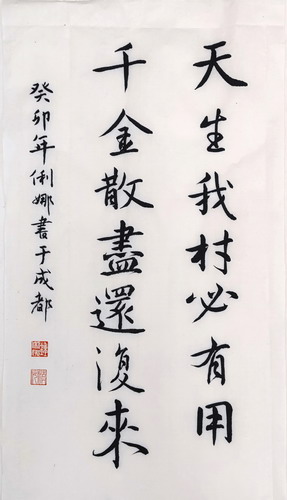 天生我材必有用
千金散盡還復來
癸卯年俐娜書于成都